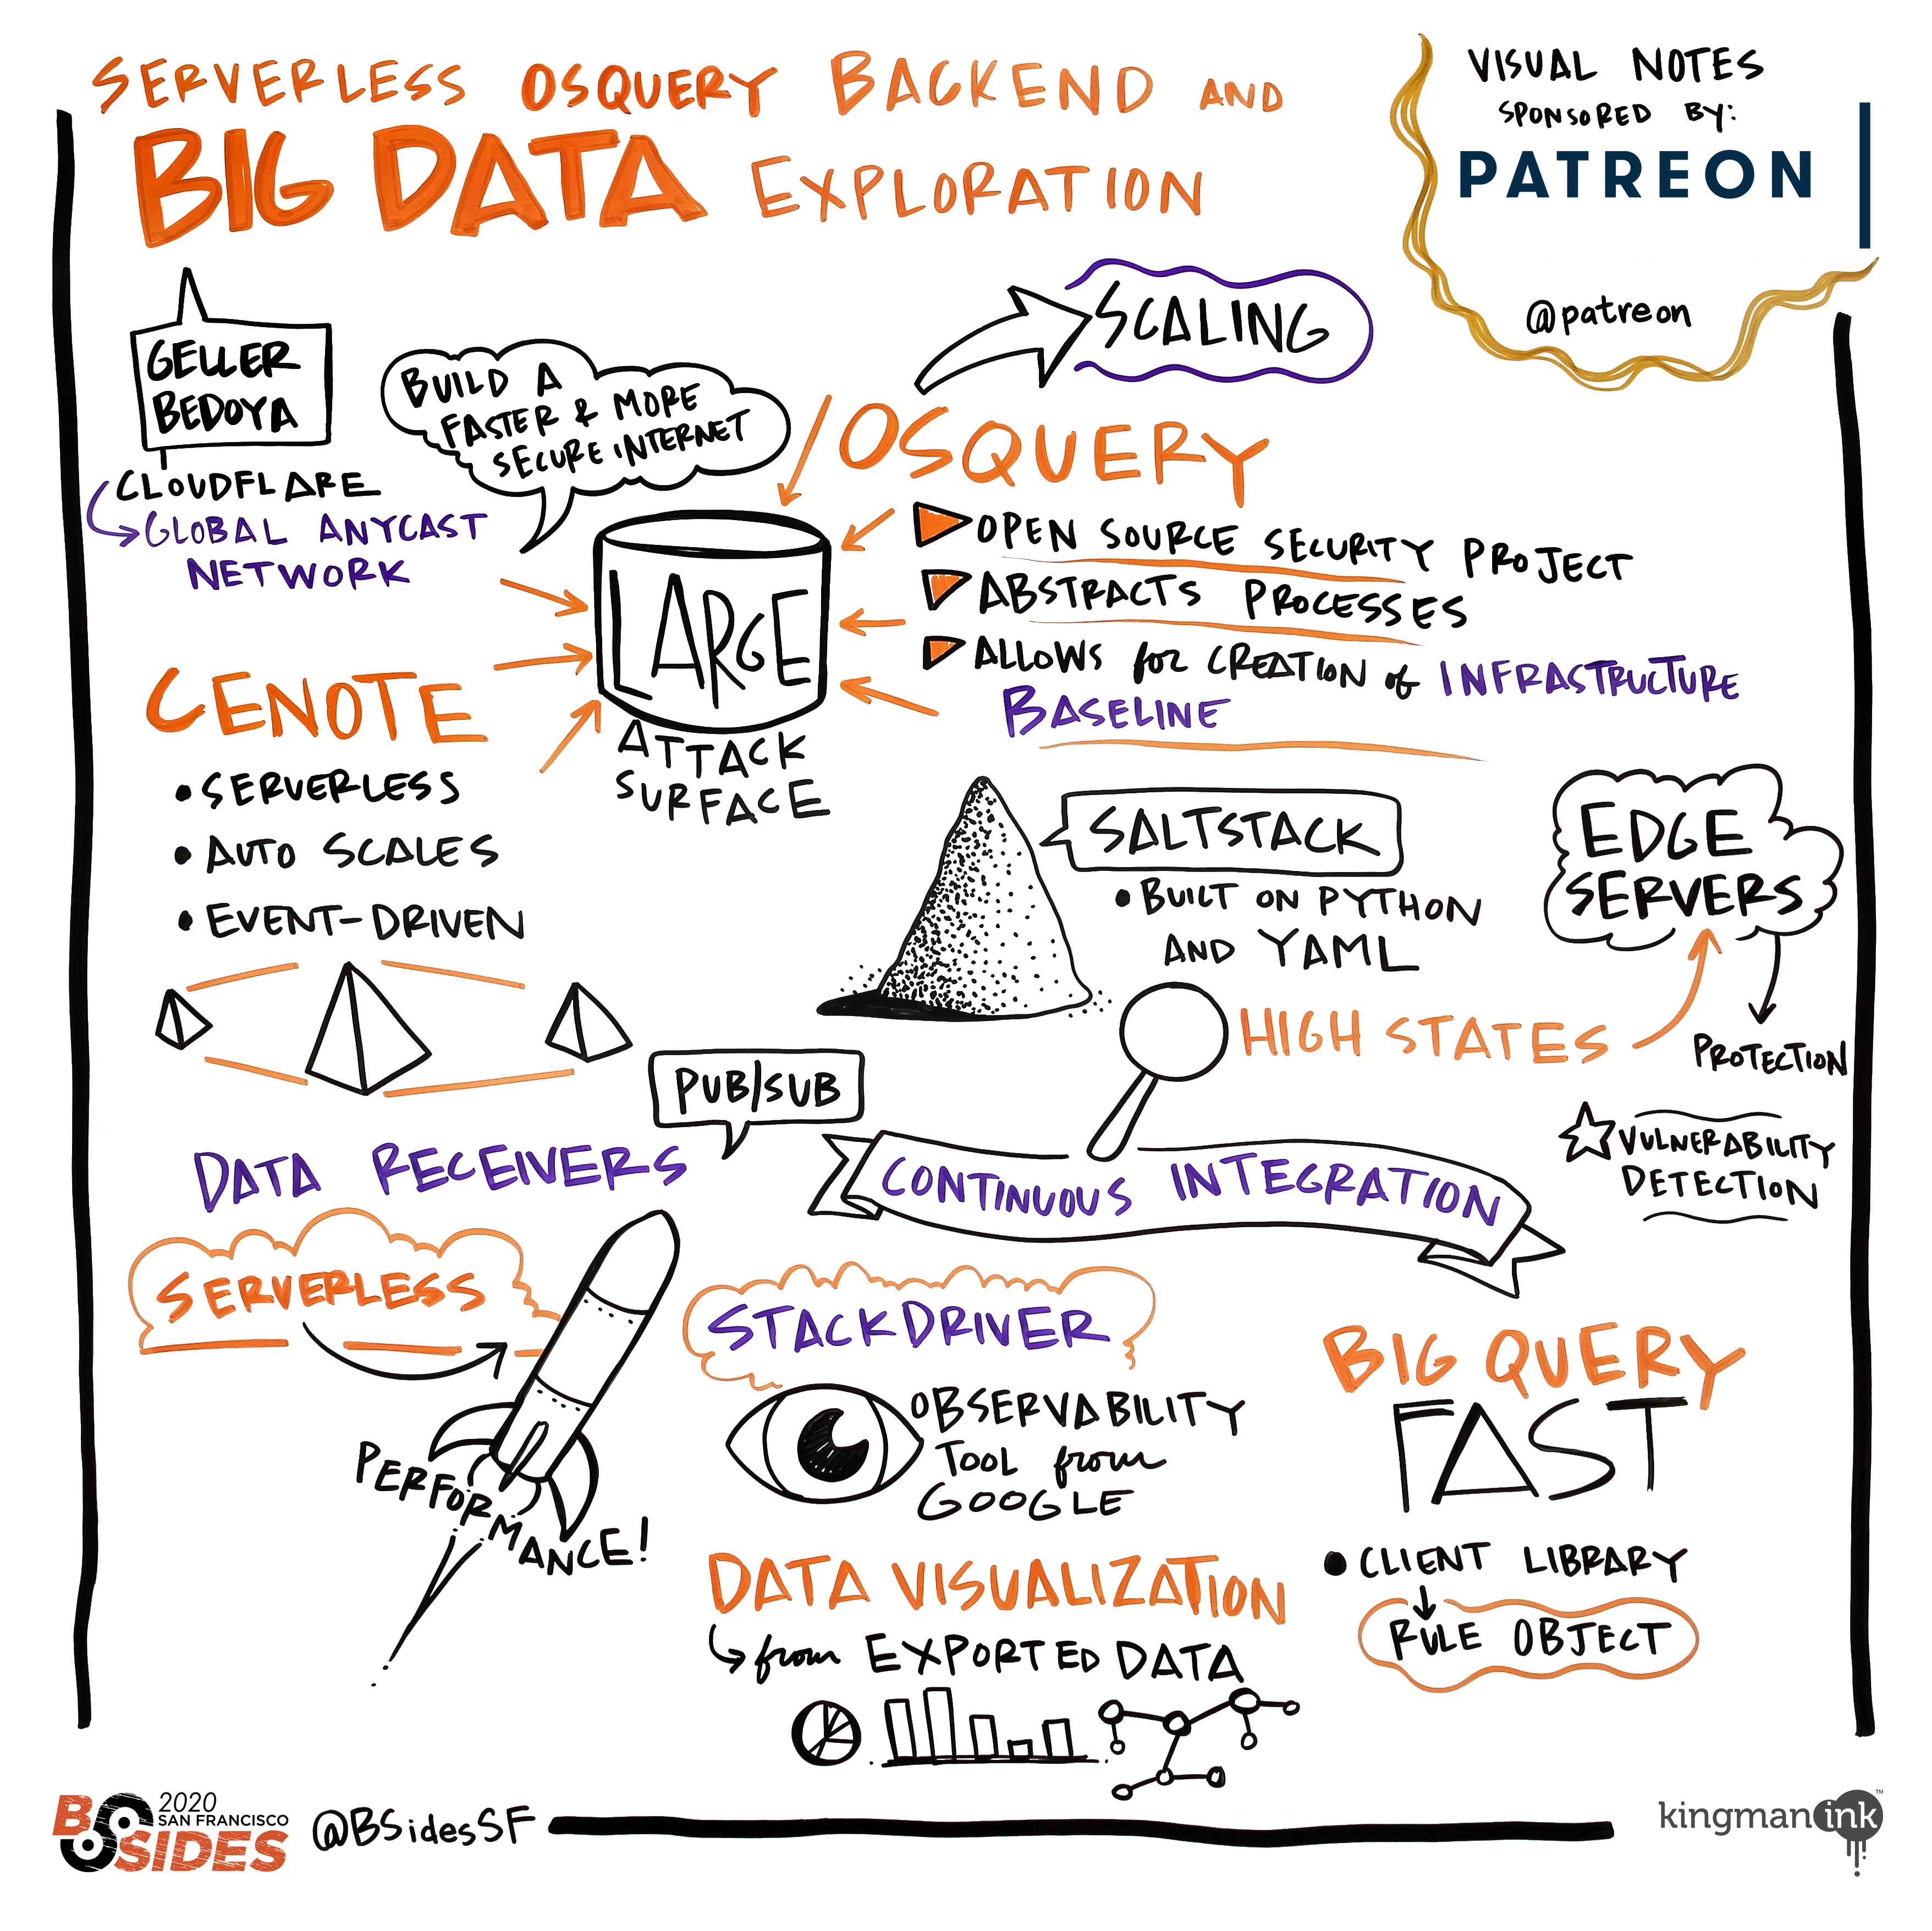 SERVERLESS OSQUERY BACKEND AND
BIG DATA EXPLORATION
VISUAL NOTES
SPONSORED BY:
PATREON
@patreon
GELLER
BEDOYA
CLOUDFLARE
GLOBAL ANYCAST
NETWORK
BUILD A
FASTER & MORE
SECURE INTERNET
SCALING
OSQUERY
OPEN SOURCE SECURITY PROJECT
ABSTRACTS PROCESSES
ALLOWS for CREATION of INFRASTRUCTURE
BASELINE
LARGE
ATTACK
SURFACE
CENOTE
• SERVERLESS
• AUTO SCALES
• EVENT-DRIVEN
SALTSTACK
• BUILT ON PYTHON
AND YAML
EDGE
SERVERS
HIGH STATES
PROTECTION
VULNERABILITY
DETECTION
PUB/SUB
DATA RECEIVERS
CONTINUOUS INTEGRATION
SERVERLESS
PERFORMANCE!
STACKDRIVER
OBSERVABILITY
TOOL from
GOOGLE
BIG QUERY
FAST
• CLIENT LIBRARY
RULE OBJECT
DATA VISUALIZATION
from EXPORTED DATA
BSIDES
2020
SAN FRANCISCO
@BSidesSF
kingman ink™